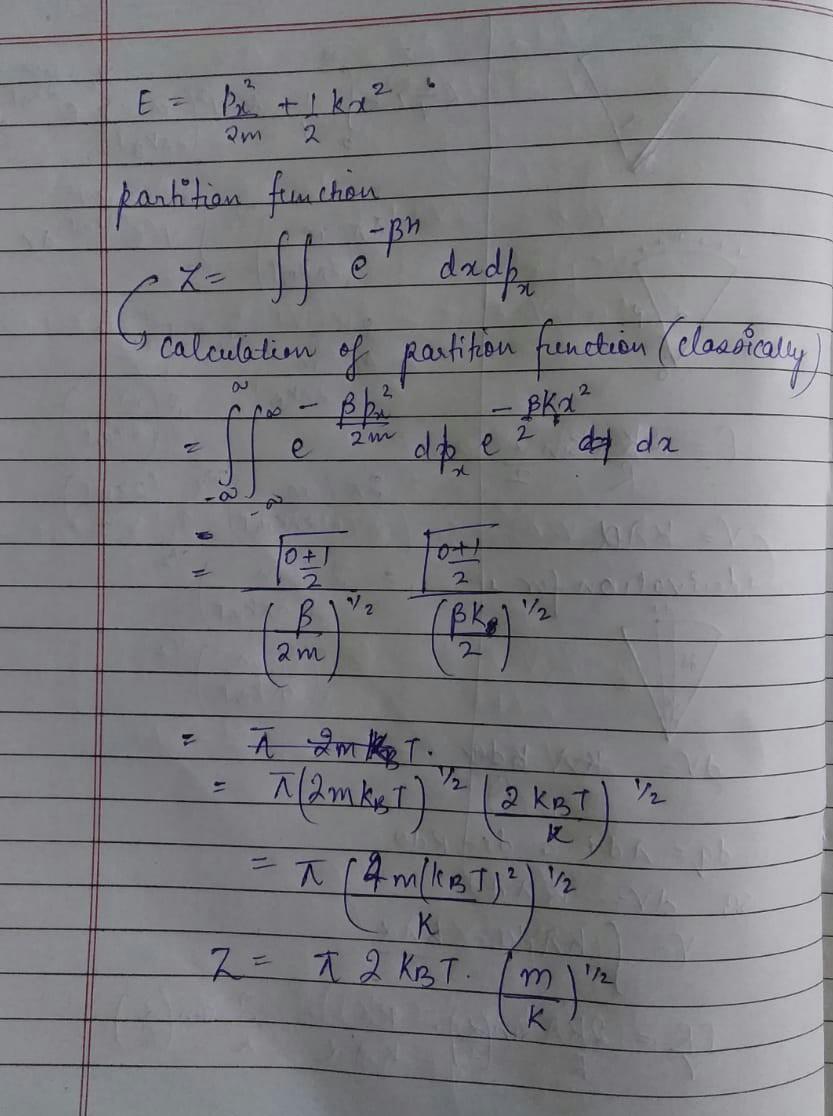 E = pₓ²/2m + 1/2 kx²
partition function
Z = ∫∫ e^(-βH) dx dpₓ
calculation of partition function (classically)
= ∫_{-∞}^{∞} ∫_{-∞}^{∞} e^(-βpₓ²/2m) dpₓ e^(-βKx²/2) dx
= Γ(0+1/2)/(β/2m)^(1/2) Γ(0+1/2)/(βK/2)^(1/2)
= π 2m k_B T.
= π(2mk_BT)^(1/2) (2k_BT/K)^(1/2)
= π (4m(k_BT)²/K)^(1/2)
Z = π 2 k_BT. (m/K)^(1/2)